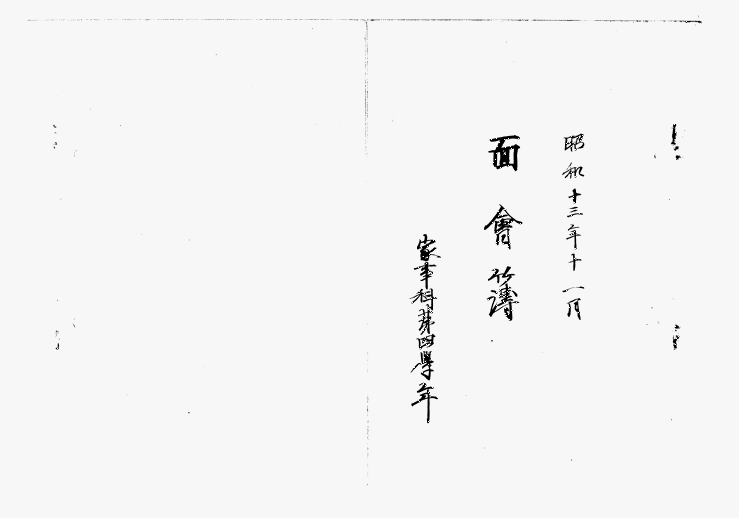 昭和十三年十一月
面會簿
家事科第四學年